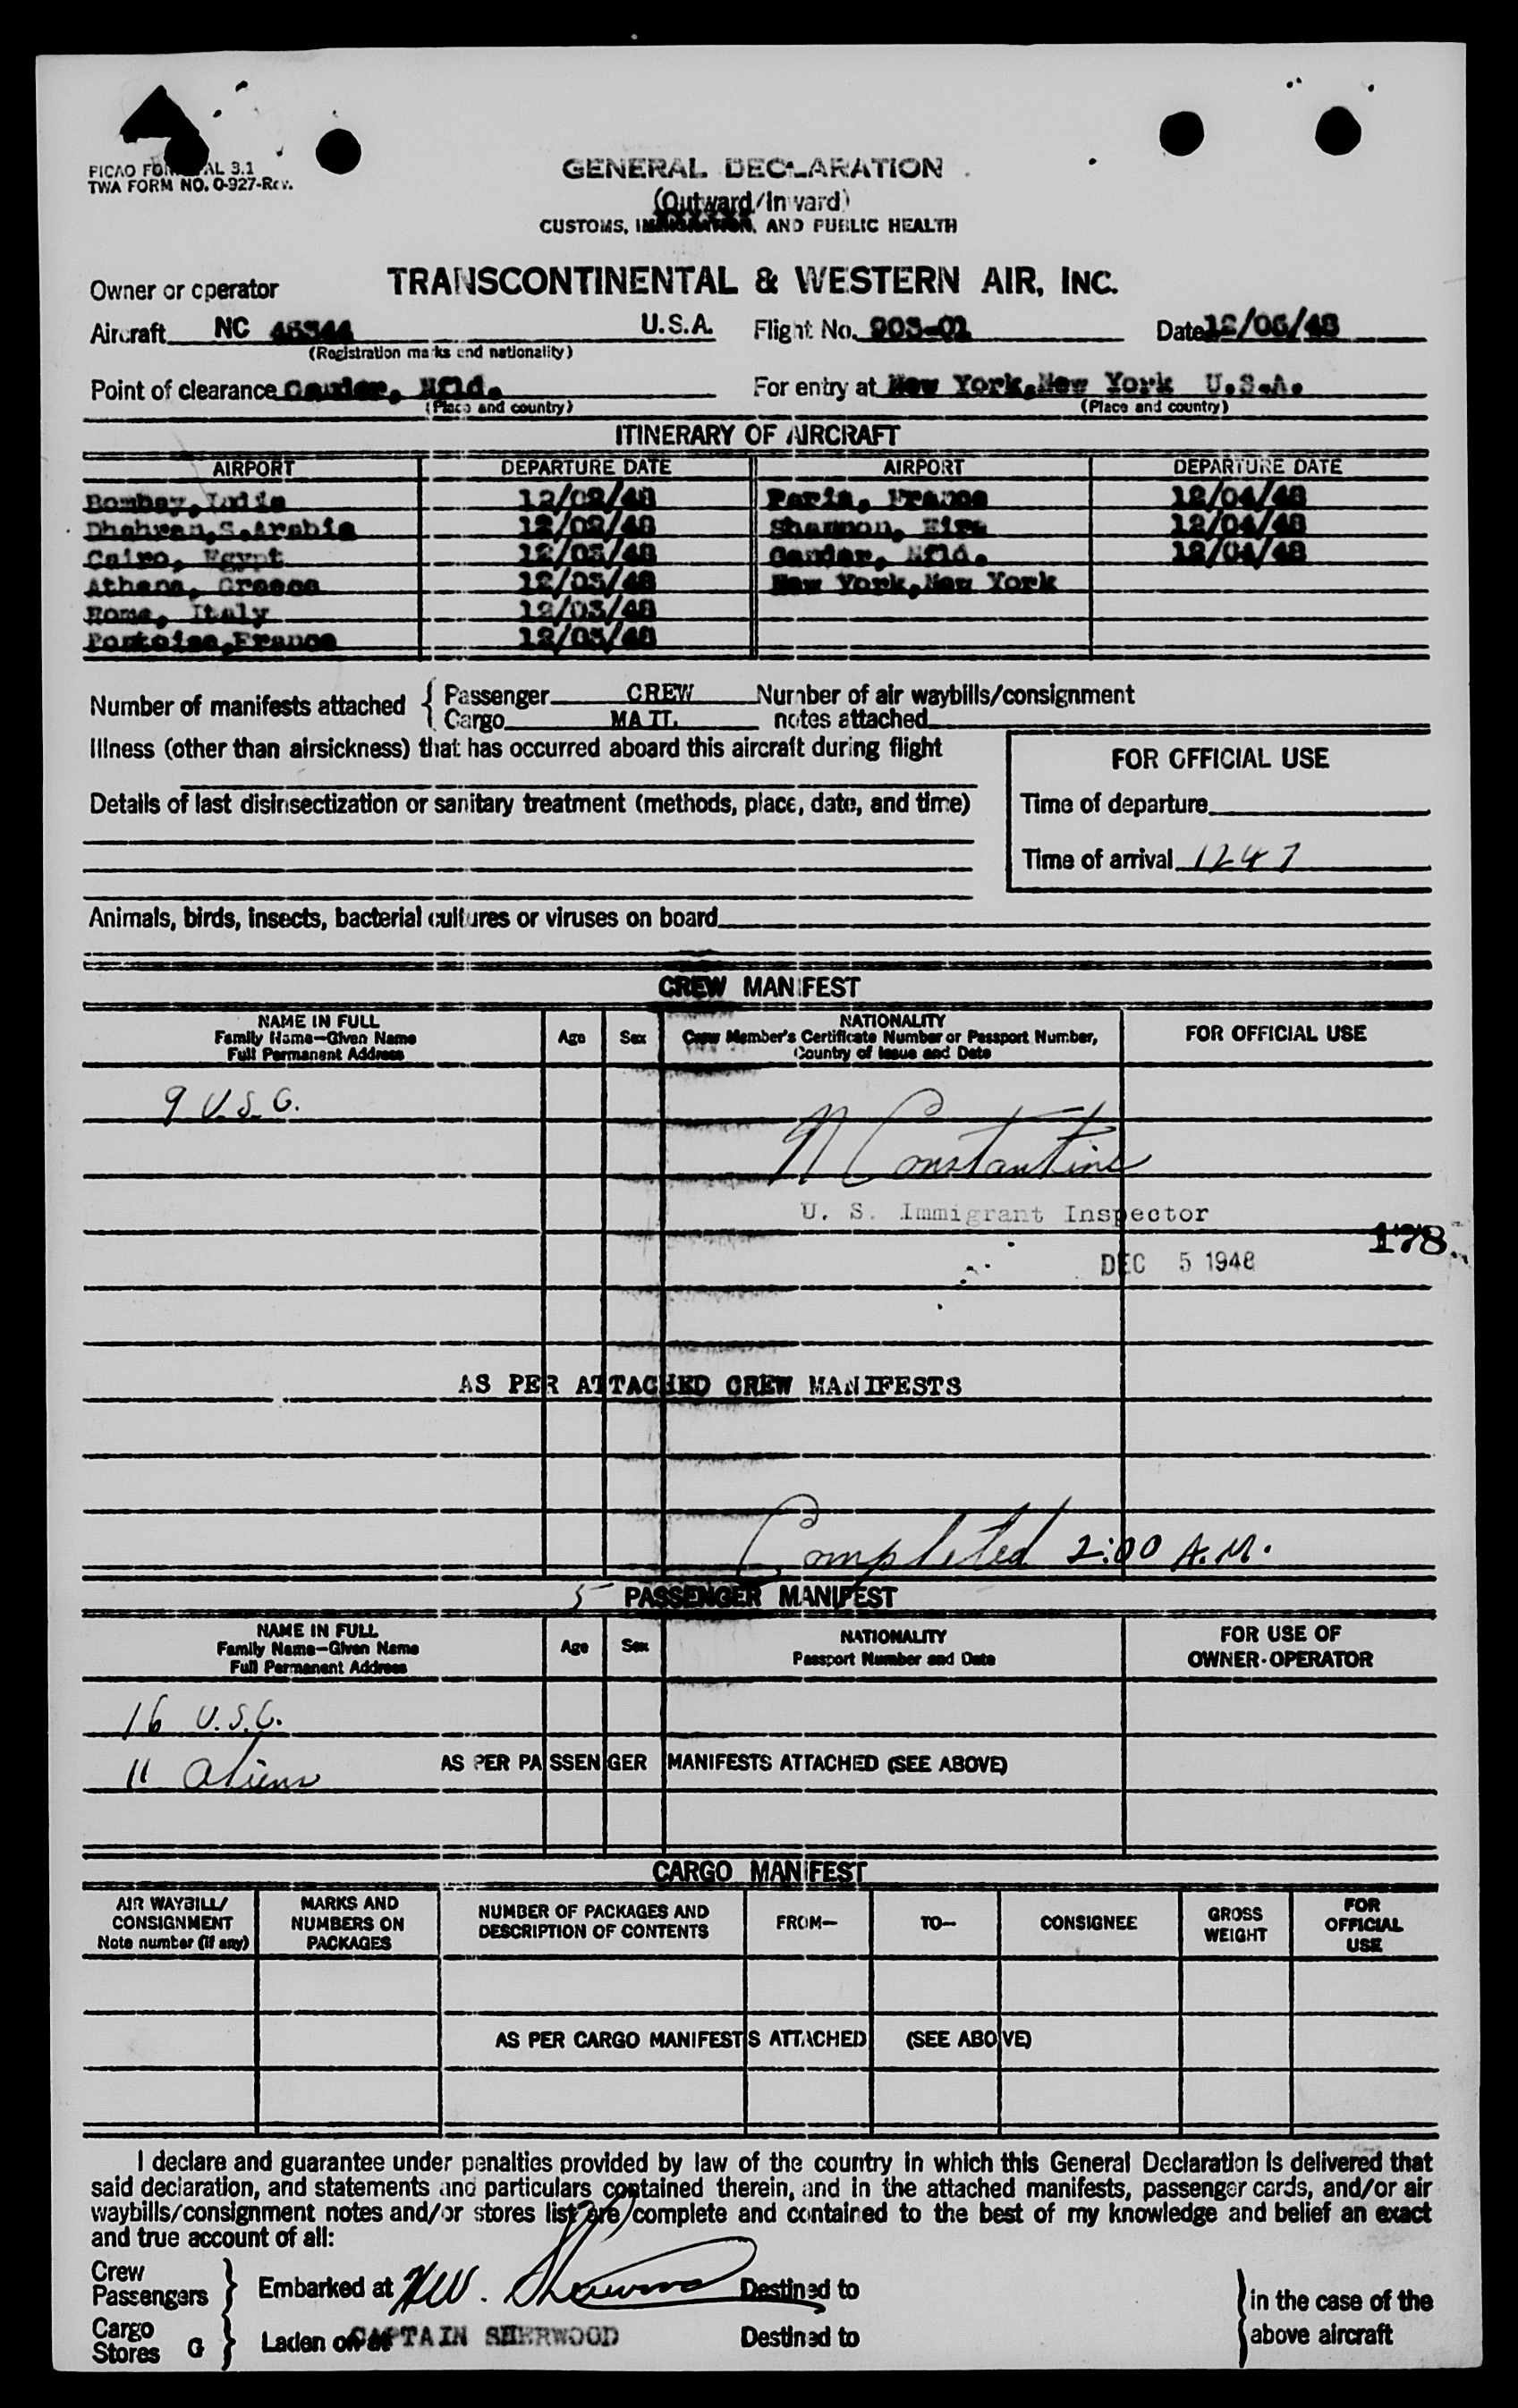 PICAO FO AL 3.1
TWA FORM NO. O-927-Rev.
GENERAL DECLARATION
(Outward/Inward)
CUSTOMS, IMMIGRATION, AND PUBLIC HEALTH
Owner or operator TRANSCONTINENTAL & WESTERN AIR, INC.
Aircraft NC 45344 U.S.A. Flight No. 903-01 Date 12/05/48
(Registration marks and nationality)
Point of clearance Gander, Nfld. For entry at New York, New York U.S.A.
(Place and country) (Place and country)
ITINERARY OF AIRCRAFT
AIRPORT DEPARTURE DATE AIRPORT DEPARTURE DATE
Bombay, India 12/02/48 Paris, France 12/04/48
Dhahran, S. Arabia 12/02/48 Shannon, Eire 12/04/48
Cairo, Egypt 12/03/48 Gander, Nfld. 12/04/48
Athens, Greece 12/03/48 New York, New York
Rome, Italy 12/03/48
Pontoise, France 12/03/48
Number of manifests attached { Passenger CREW Number of air waybills/consignment
Cargo MAIL notes attached
Illness (other than airsickness) that has occurred aboard this aircraft during flight
FOR OFFICIAL USE
Details of last disinsectization or sanitary treatment (methods, place, date, and time)
Time of departure
Time of arrival 1247
Animals, birds, insects, bacterial cultures or viruses on board
CREW MANIFEST
NAME IN FULL
Family Name—Given Name
Full Permanent Address
Age Sex
NATIONALITY
Crew Member's Certificate Number or Passport Number,
Country of Issue and Date
FOR OFFICIAL USE
9 U.S.C.
N Constantine
U. S. Immigrant Inspector
178
DEC 5 1948
AS PER ATTACHED CREW MANIFESTS
Completed 2:00 A.M.
5 PASSENGER MANIFEST
NAME IN FULL
Family Name—Given Name
Full Permanent Address
Age Sex
NATIONALITY
Passport Number and Date
FOR USE OF
OWNER-OPERATOR
16 U.S.C.
11 aliens AS PER PASSENGER MANIFESTS ATTACHED (SEE ABOVE)
CARGO MANIFEST
AIR WAYBILL/
CONSIGNMENT
Note number (if any)
MARKS AND
NUMBERS ON
PACKAGES
NUMBER OF PACKAGES AND
DESCRIPTION OF CONTENTS
FROM—
TO—
CONSIGNEE
GROSS
WEIGHT
FOR
OFFICIAL
USE
AS PER CARGO MANIFESTS ATTACHED (SEE ABOVE)
I declare and guarantee under penalties provided by law of the country in which this General Declaration is delivered that
said declaration, and statements and particulars contained therein, and in the attached manifests, passenger cards, and/or air
waybills/consignment notes and/or stores list are complete and contained to the best of my knowledge and belief an exact
and true account of all:
Crew
Passengers } Embarked at HW. Sherwood Destined to
Cargo
Stores G } Laden on at CAPTAIN SHERWOOD Destined to
} in the case of the
above aircraft